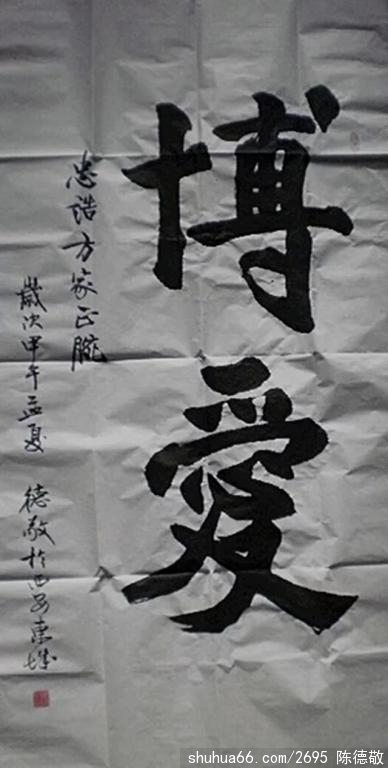 博愛
忠浩方家正腕
歲次甲午孟夏 德敬於西安東城
shuhua66.com/2695 陈德敬